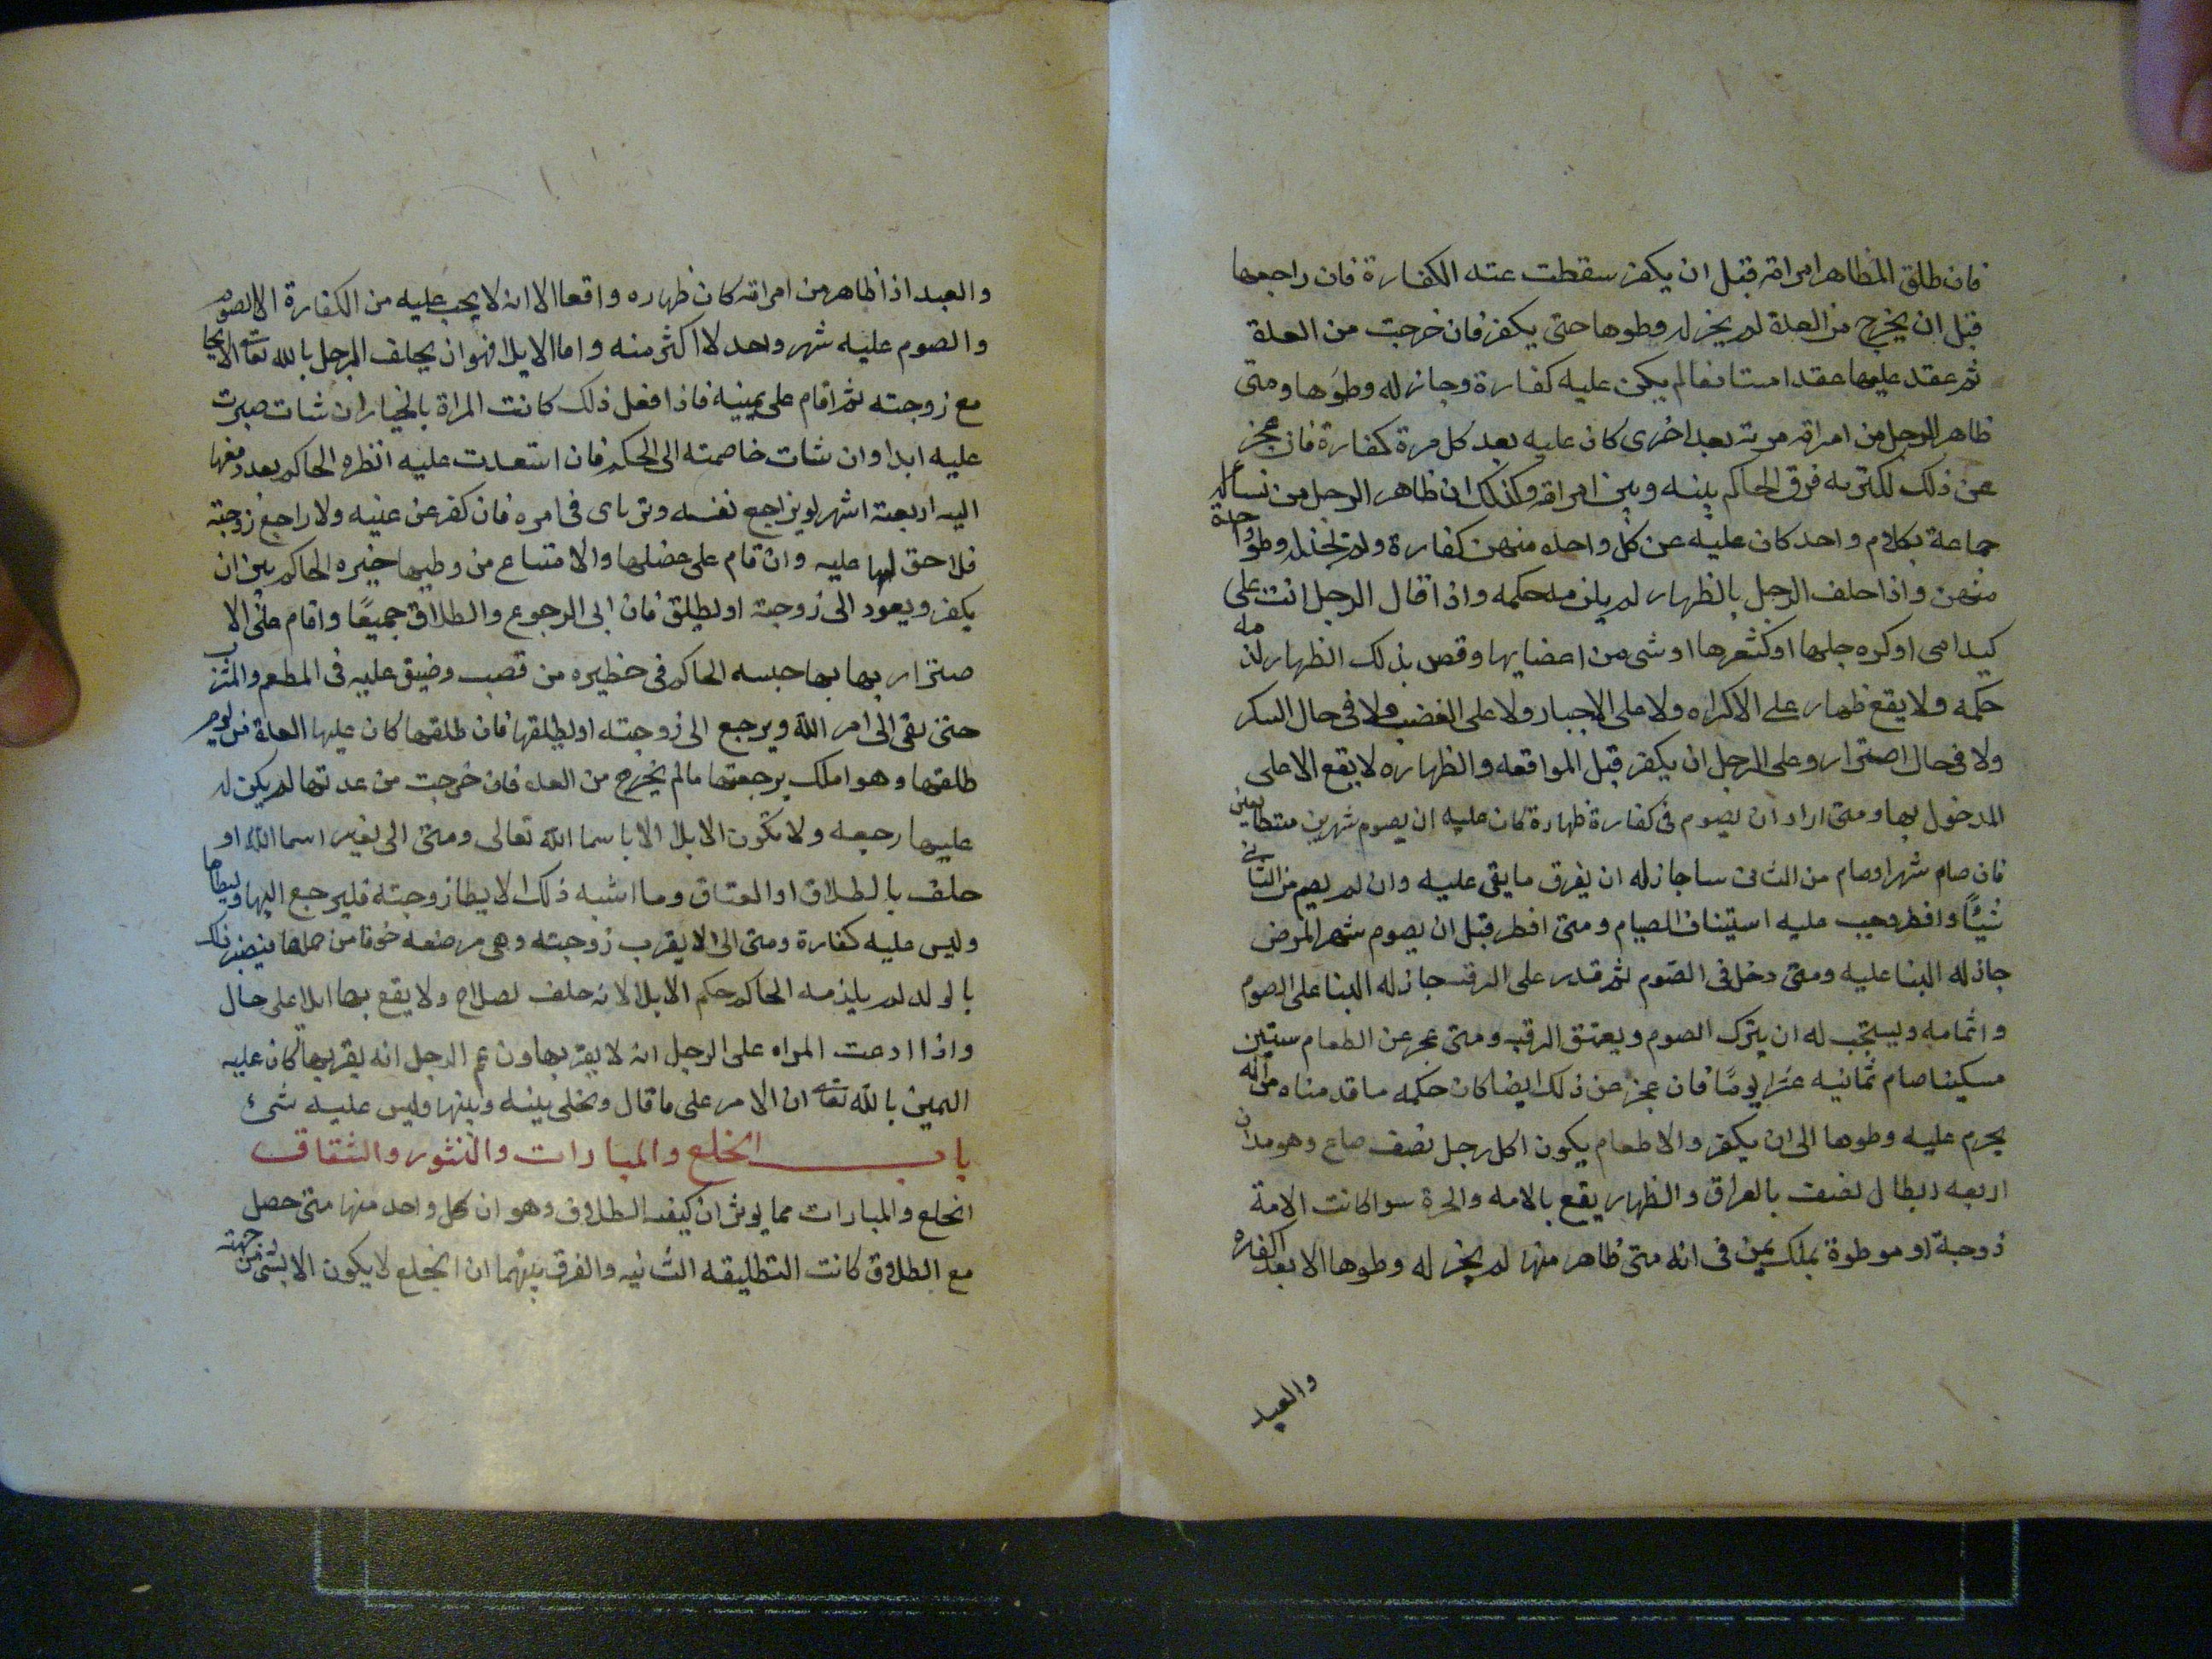 فان طلق المظاهر امراته قبل ان يكفر سقطت عنه الكفارة فان راجعها
قبل ان يخرج من العدة لم يجز له وطوها حتى يكفر فان خرجت من العدة
ثم عقد عليها عقدا مستانفا لم يكن عليه كفارة وجاز له وطوها ومتى
ظاهر الرجل من امراته مرة بعد اخرى كان عليه بعد كل مرة كفارة فان عجز
عن ذلك لكثرته فرق الحاكم بينه وبين امراته وكذلك ان ظاهر الرجل من نسا له
جماعة بكلام واحد كان عليه عن كل واحده منهن كفارة ولم تجز له وطو واحدة
منهن واذا حلف الرجل بالظهار لم يلزمه حكمه واذا قال الرجل انت على
كيد امى او كره جلها او كشعرها او شى من اعضايها وقص بذلك الظهار لزمه
حكمه ولا يقع ظهار على الاكراه ولا على الاجبار ولا على الغضب ولا فى حال السكر
ولا فى حال اضرار وعلى الرجل ان يكفر قبل المواقعه والظهاره لا يقع الا على
المدخول بها ومتى اراد ان يصوم فى كفارة ظهارة كان عليه ان يصوم شهرين متتابعين
فان صام شهرا وصام من الثانى سا جاز له ان يفرق ما بقى عليه وان لم يصم من الثانى
شيئًا وافطر وجب عليه استيناف الصيام ومتى افطر قبل ان يصوم شهر المرض
جاز له البنا عليه ومتى دخل فى الصوم ثم قدر على الرقبه جاز له البنا على الصوم
واتمامه ويستحب له ان يترك الصوم ويعتق الرقبه ومتى عجز عن الطعام ستين
مسكينا صام ثمانيه عشر يومًا فان عجز عن ذلك ايضا كان حكمه ما قدمناه من انه
يحرم عليه وطوها الى ان يكفر والاطعام يكون لكل رجل نصف صاع وهو مدان
اربعه ارطال نصف بالعراق والظهار يقع بالامه والحرة سوا كانت الامة
زوجة او موطوة بملك يمين فى انه متى ظاهر منها لم يجز له وطوها الا بعد الكفاره
والعبد
والعبد اذا ظاهر من امراته كان ظهاره واقعا الا انه لا يجب عليه من الكفارة الا الصوم
والصوم عليه شهر واحد لا اكثر منه واما الايلا فهو ان يحلف الرجل بالله تعالى الا يجا
مع زوجته ثم اقام على يمينه فاذا فعل ذلك كانت المراة بالخيار ان شات صبرت
عليه ابدا وان شات خاصمته الى الحكم فان استعدت عليه انظره الحاكم بعد رفعها
اليه اربعة اشهر ليراجع نفسه وترباى فى امره فان كفر عن عنيه ولا راجع زوجته
فلا حق لها عليه وان قام على عضلها والامتناع من وطيها خيره الحاكم بين ان
يكفر ويعود الى زوجته او يطلق فان ابى الرجوع والطلاق جميعًا واقام على الا
ضرار بها بها حبسه الحاكم فى حظيره من قصب وضيق عليه فى المطعم والمشرب
حتى يفى الى امر الله ويرجع الى زوجته او يطلقها فان طلقها كان عليها العدة من يوم
طلقها وهو املك برجعتها مالم يخرج من العده فان خرجت من عدتها لم يكن له
عليها رجعه ولا تكون الايلا الا باسما الله تعالى ومتى الى بغير اسما الله او
حلف بالطلاق او العتاق وما اشبه ذلك الا يطا زوجته فليرجع اليها ويطاها
وليس عليه كفارة ومتى الى الا يقرب زوجته وهى مرضعه خوفا من حملها فيضر ذلك
بالولد لم يلزمه الحاكم حكم الايلا لانه حلف لصلاح ولا يقع بها ايلا على حال
واذا ادعت المراه على الرجل انه لا يقربها وزعم الرجل انه يقربها كان عليه
اليمين بالله تعالى ان الامر على ما قال ويخلى بينه وبينها وليس عليه شىء
باب الخلع والمبارات والنشوز والشقاق
الخلع والمبارات مما يوثران كيف الطلاق وهو ان كل واحد منها متى حصل
مع الطلاق كانت التطليقه الثانيه والفرق بينهما ان الخلع لا يكون الا بشى من جهته